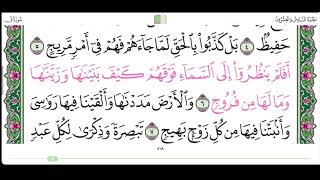 الجزء السادس والعشرون
سورة ق
حَفِيظٌ ٤ بَلْ كَذَّبُوا۟ بِٱلْحَقِّ لَمَّا جَآءَهُمْ فَهُمْ فِىٓ أَمْرٍ مَّرِيجٍ ٥
أَفَلَمْ يَنظُرُوٓا۟ إِلَى ٱلسَّمَآءِ فَوْقَهُمْ كَيْفَ بَنَيْنَٰهَا وَزَيَّنَّٰهَا
وَمَا لَهَا مِن فُرُوجٍ ٦ وَٱلْأَرْضَ مَدَدْنَٰهَا وَأَلْقَيْنَا فِيهَا رَوَٰسِىَ
وَأَنۢبَتْنَا فِيهَا مِن كُلِّ زَوْجٍۭ بَهِيجٍ ٧ تَبْصِرَةً وَذِكْرَىٰ لِكُلِّ عَبْدٍ
٥١٨